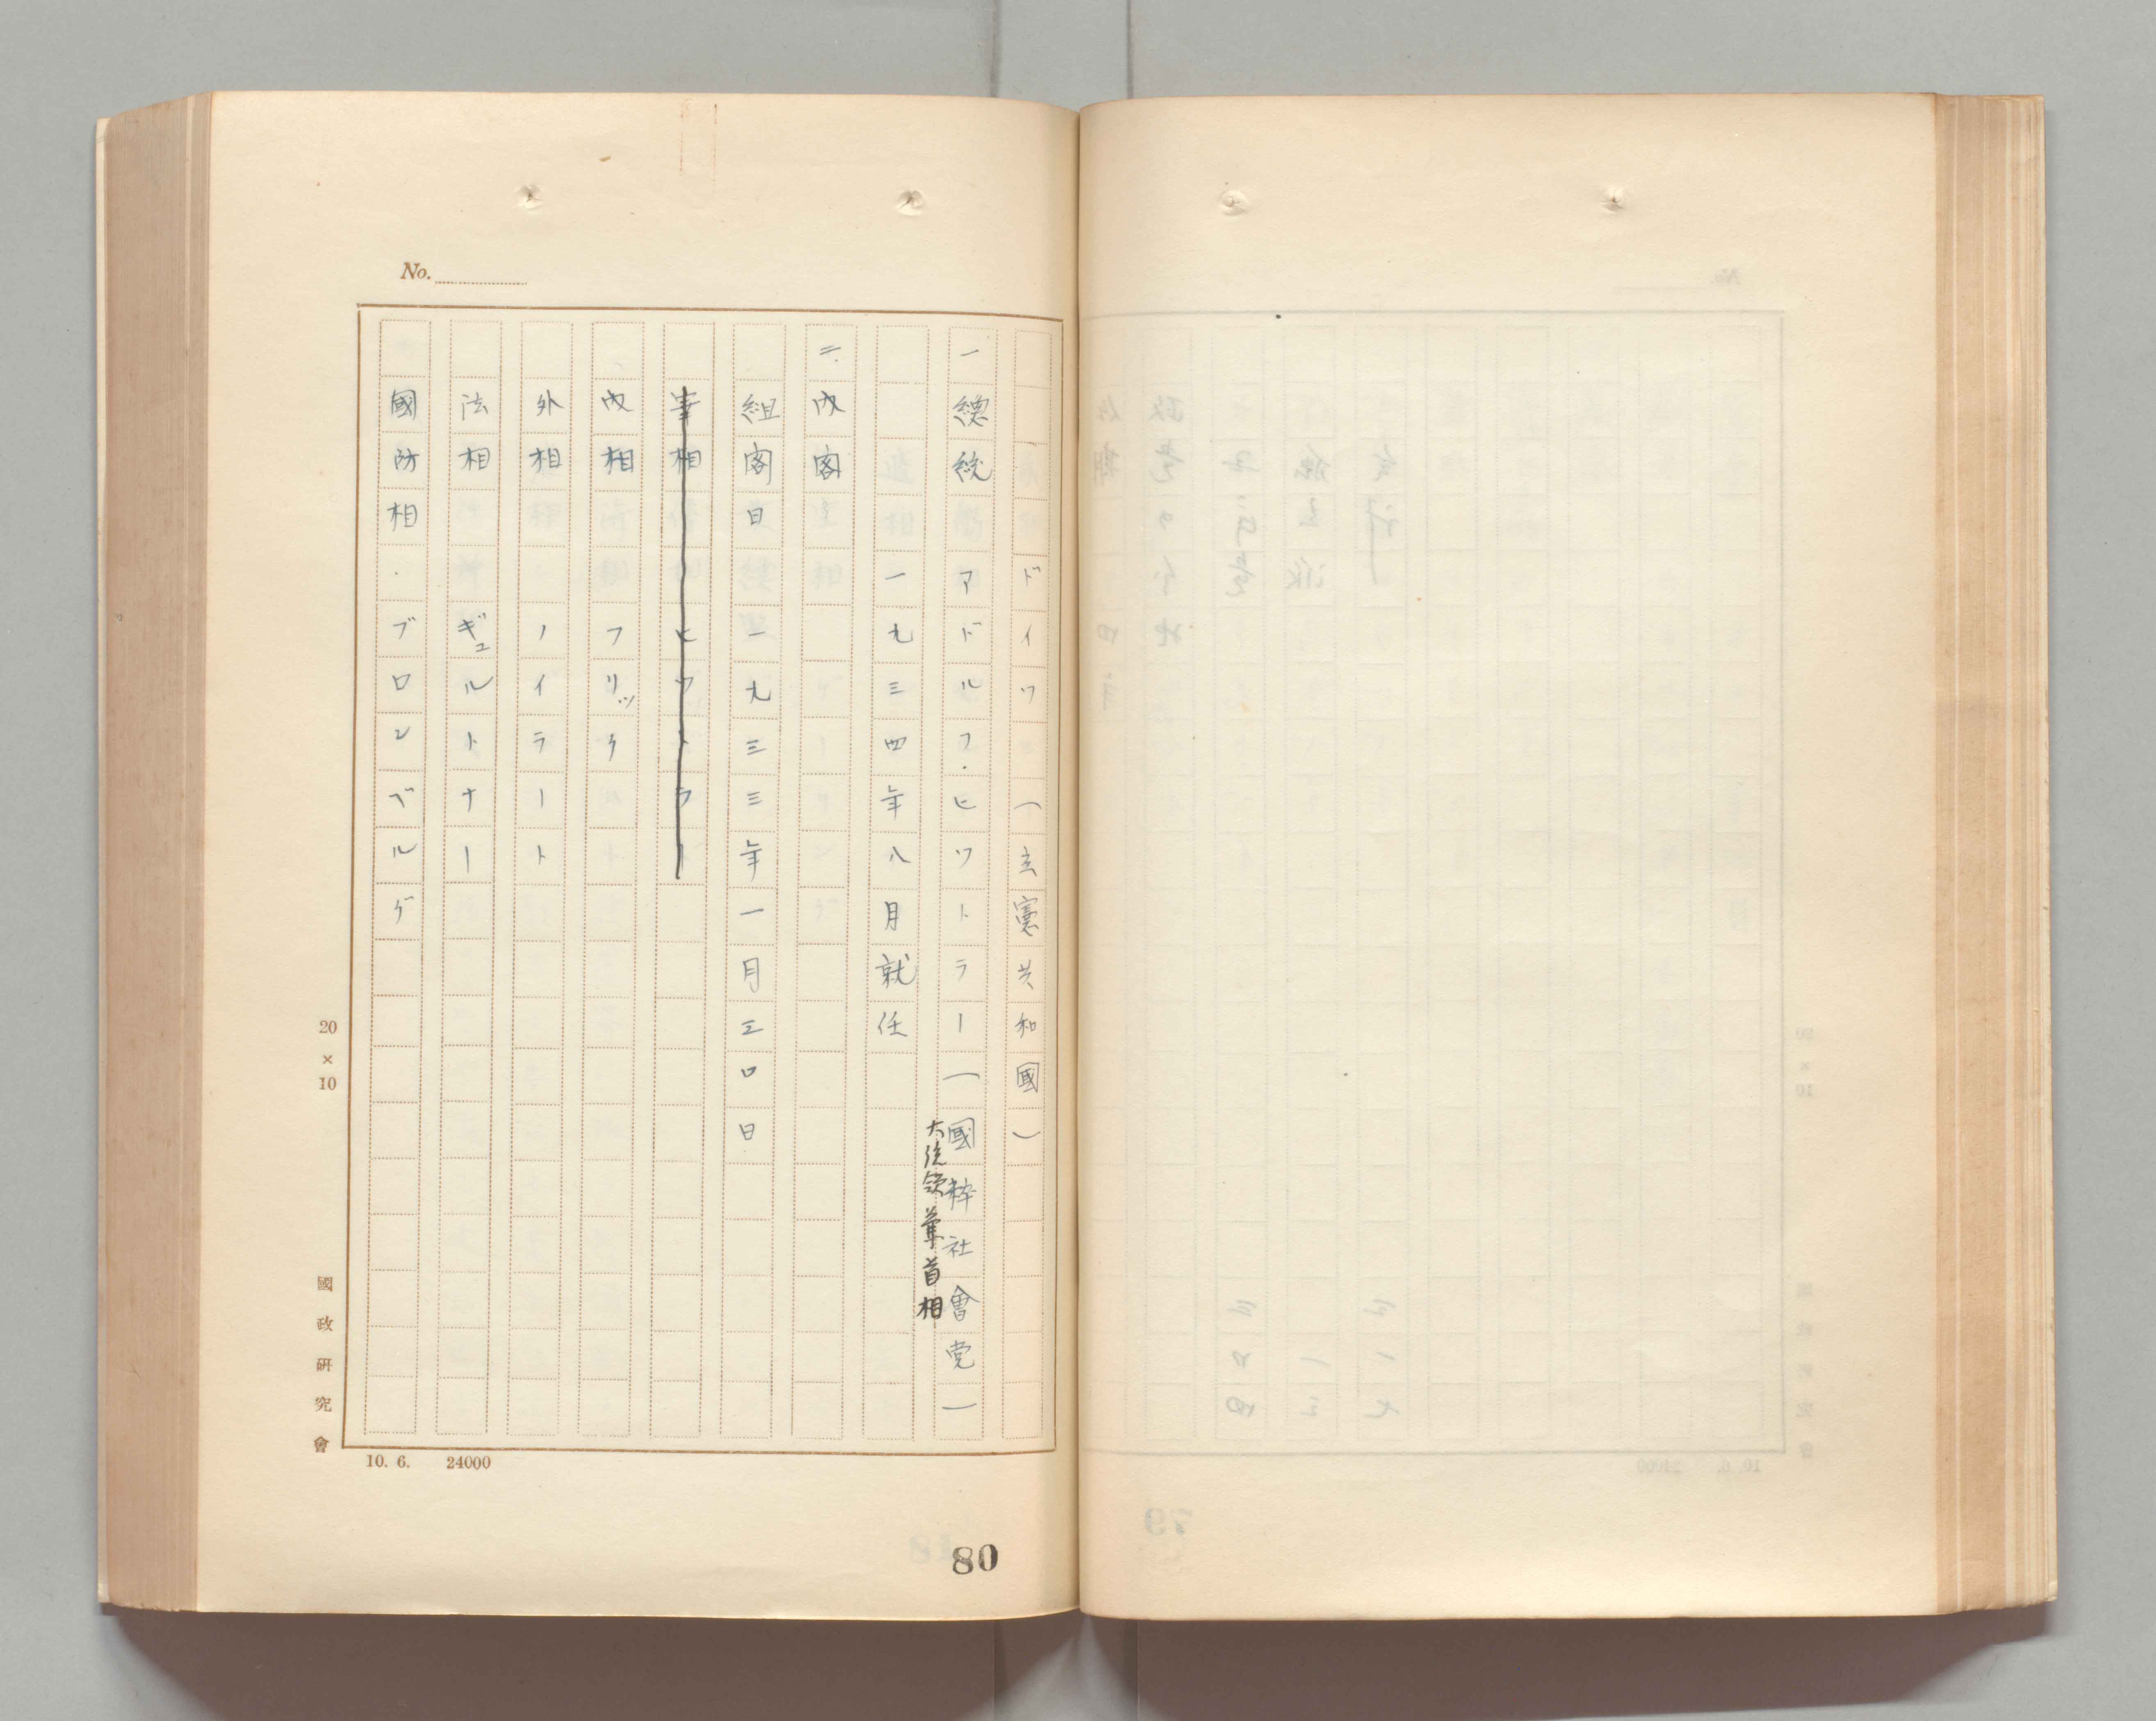 No.
ドイツ（立憲共和國）
一總統 アドルフ・ヒットラー（國粹社會党）
大統領兼首相
一九三四年八月就任
二.内閣
組閣日 一九三三年一月三〇日
相 ヒットラー
内相 フリック
外相 ノイラート
法相 ギュルトナー
國防相・ブロンベルグ
20×10
國政研究會
10. 6. 24000
80